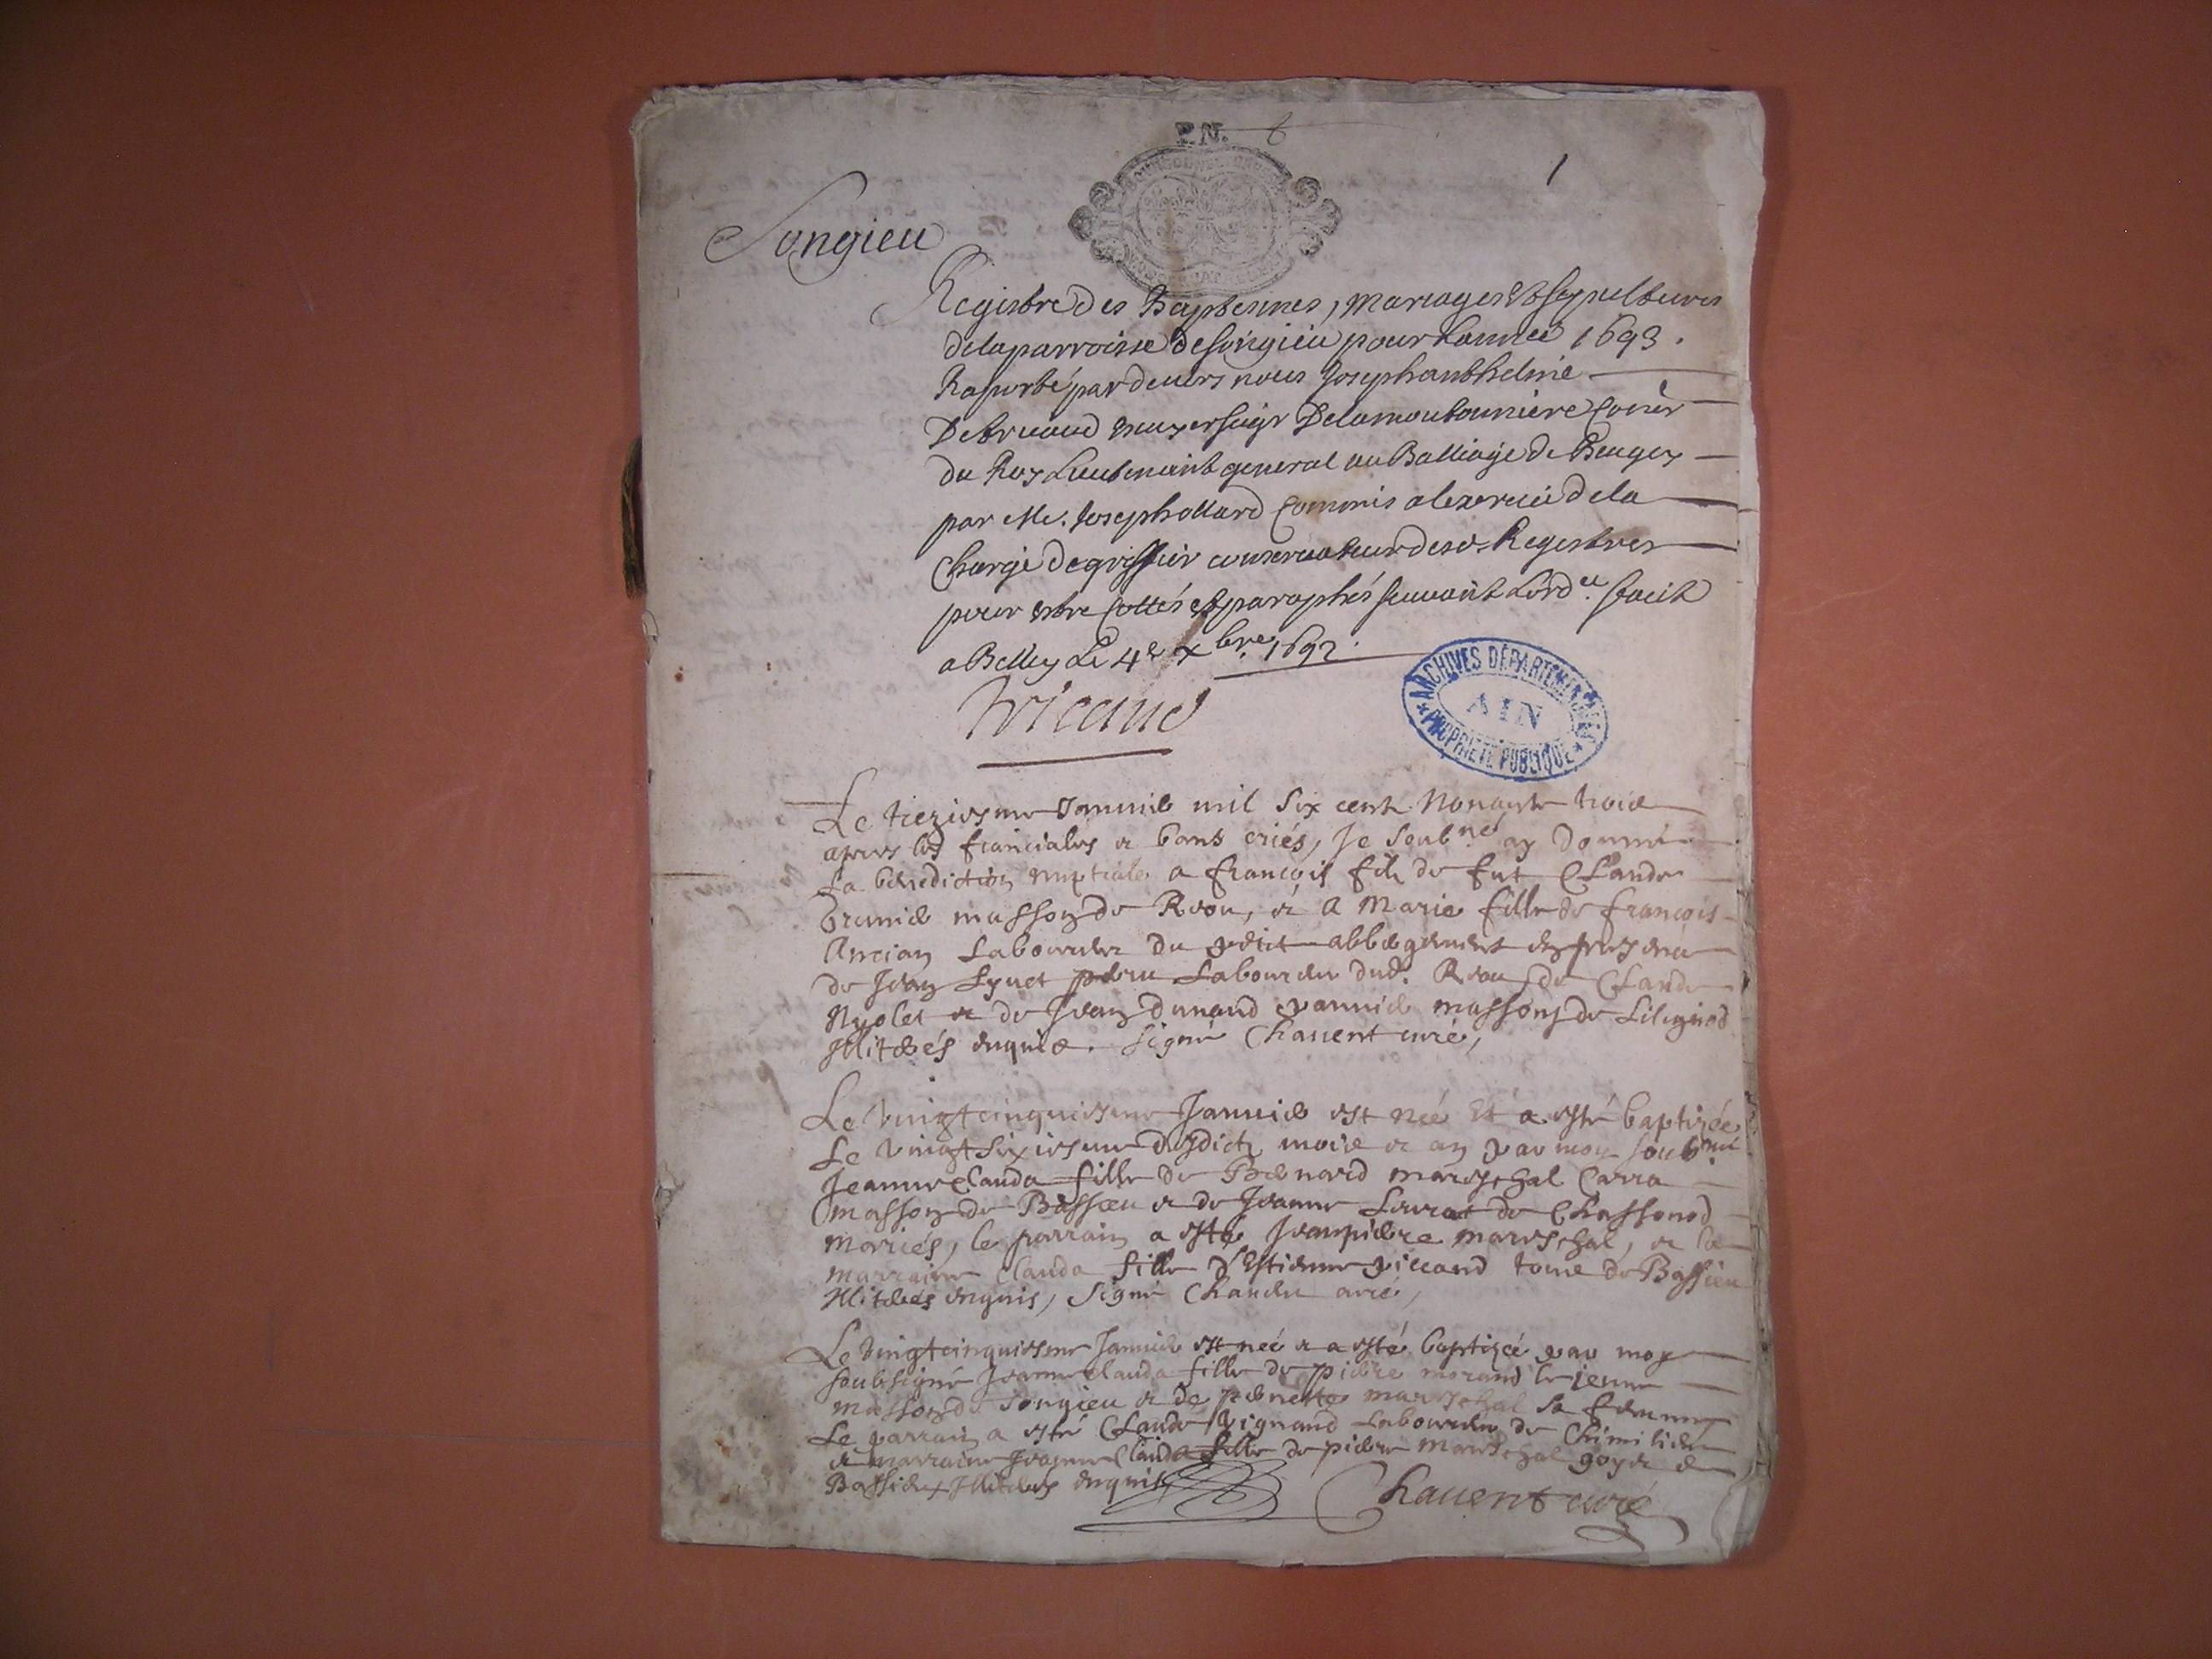 P.N. 6
1
Songieu
Registre des Baptesmes, mariages & sepultures
de la parroisse de songieu pour lannée 1693.
Raporté pardevers nous Joseph anthelme
Detricaud seigr Delamoutonniere
du Roy Lieutenant general au Balliage de Beugey
par Me. Joseph ollard Commis a lexercice de la
Charge de greffier conservateur desd. Registres
pour estre Cottés & paraphés suivant Lord.ce faict
a Belley Le 4e xbre. 1692.
Tricaud
ARCHIVES DÉPARTEMENTALES
AIN
PROPRIÉTÉ PUBLIQUE
Le treziesme Janvie mil six cent Nonante trois
apres les fiancialies & bans criés, Je soubné ay Donné
La benediction nuptiale a françois fils de fut Claude
masson de , & a Marie fille de françois
Ancian Laboureur du abbegement en presence
de Jean Lyvet Laboureur dud. de Claude
& de Jean Dunand massons de Lilignod
Illiterés enquis. signé Chavent curé,
Le vingtcinquiesme Janvier est née Et a esté baptizée
Le vingtsixiesme desdicts mois & an par moy soubné
Jeanne Clauda fille de Bernard mareschal Carra
masson de Bassieu & de Jeanne de Chassonod
Mariés, le parrain a esté Jeanpierre mareschal, & la
marraine Clauda fille d'Estienne de Bassieu
Illiterés enquis, signé Chavent curé,
Le vingtcinquiesme Janvier est née & a esté baptizée par moy
soubsigné Jeanne Clauda fille de pierre morand le jeune
masson de songieu & de pernette mareschal sa femme
Le parrain a esté Claude Vignand Laboureur de Chimilieu
& marraine Jeanne Clauda fille de pierre Mareschal goy de
Bassieu Illiterés enquis
Chavent curé